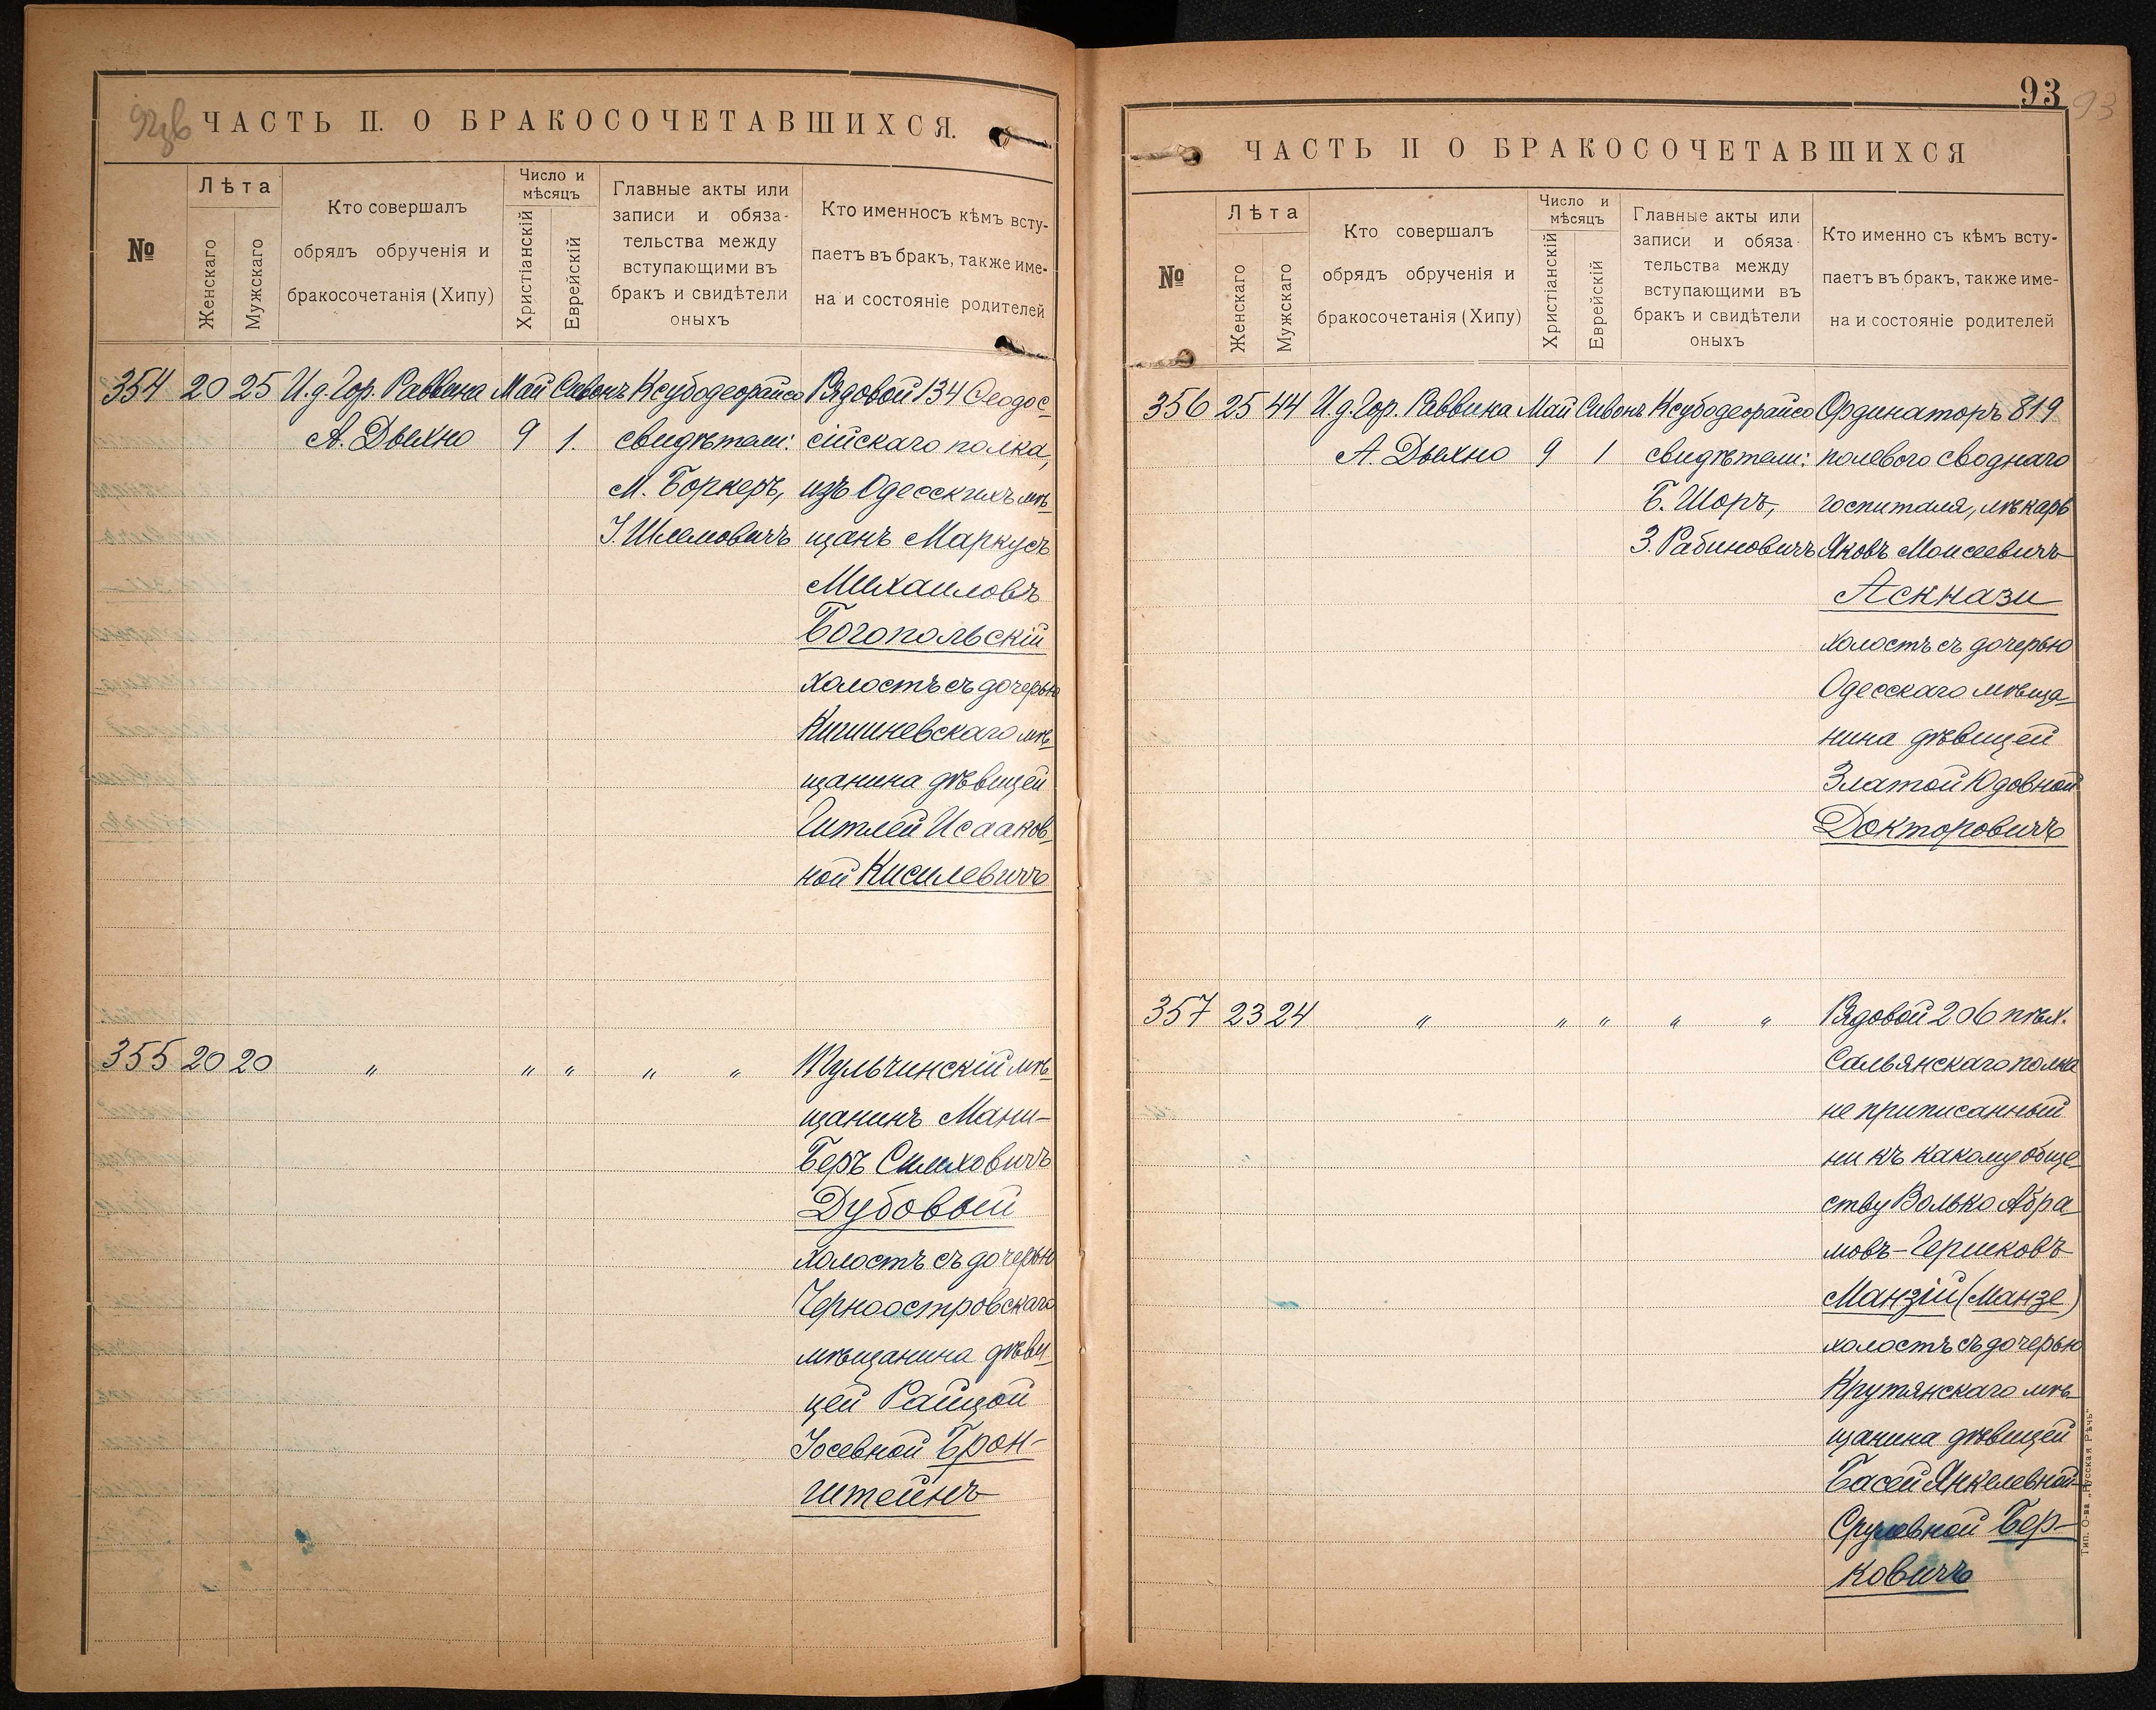 92зв
ЧАСТЬ II. О БРАКОСОЧЕТАВШИХСЯ.
№
Лѣта
Женскаго
Мужскаго
Кто совершалъ
обрядъ обрученія и
бракосочетанія (Хипу)
Число и
мѣсяцъ
Христіанскій
Еврейскій
Главные акты или
записи и обяза-
тельства между
вступающими въ
бракъ и свидѣтели
оныхъ
Кто именносъ кѣмъ всту-
паетъ въ бракъ, также име-
на и состояніе родителей
354 20 25 И.д. Гор. Раввина Май Сивонъ Ксубодеорайсо Рядовой 134 Ѳеодос-
А. Дыхно 9 1. свидѣтели: сійскаго полка,
М. Боркеръ, изъ Одесскихъ мѣ-
І. Шлемовичъ щанъ Маркусъ
Михаиловъ
Богопольскій
холостъ съ дочерью
Кишиневскаго мѣ-
щанина дѣвицей
Гитлей Исааков-
ной Кисилевичъ
355 20 20 " " " " " Тульчинскій мѣ-
щанинъ Мани-
Беръ Симховичъ
Дубовый
холостъ съ дочерью
Черноостровскаго
мѣщанина дѣви-
цей Райцой
Іосевной Брон-
штейнъ
93
93
ЧАСТЬ II О БРАКОСОЧЕТАВШИХСЯ
№
Лѣта
Женскаго
Мужскаго
Кто совершалъ
обрядъ обрученія и
бракосочетанія (Хипу)
Число и
мѣсяцъ
Христіанскій
Еврейскій
Главные акты или
записи и обяза-
тельства между
вступающими въ
бракъ и свидѣтели
оныхъ
Кто именно съ кѣмъ всту-
паетъ въ бракъ, также име-
на и состояніе родителей
356 25 44 И.д. Гор. Раввина Май Сивонъ Ксубодеорайсо Ординаторъ 819
А. Дыхно 9 1 свидѣтели: полевого своднаго
Б. Шоръ, госпиталя, лѣкарь
З. Рабиновичъ Яковъ Моисеевичъ
Аскнази
холостъ съ дочерью
Одесскаго мѣща-
нина дѣвицей
Златой Юдовной
Докторовичъ
357 23 24 " " " " " Рядовой 206 пѣх.
Сальянскаго полка
не приписанный
ни къ какому обще-
ству Волько Абра-
мовъ-Гершковъ
Манзій (Манзе)
холостъ съ дочерью
Крутянскаго мѣ-
щанина дѣвицей
Басей Янкелевной-
Срулевной Бер-
ковичъ
Тип. О-ва „Русская Рѣчь"